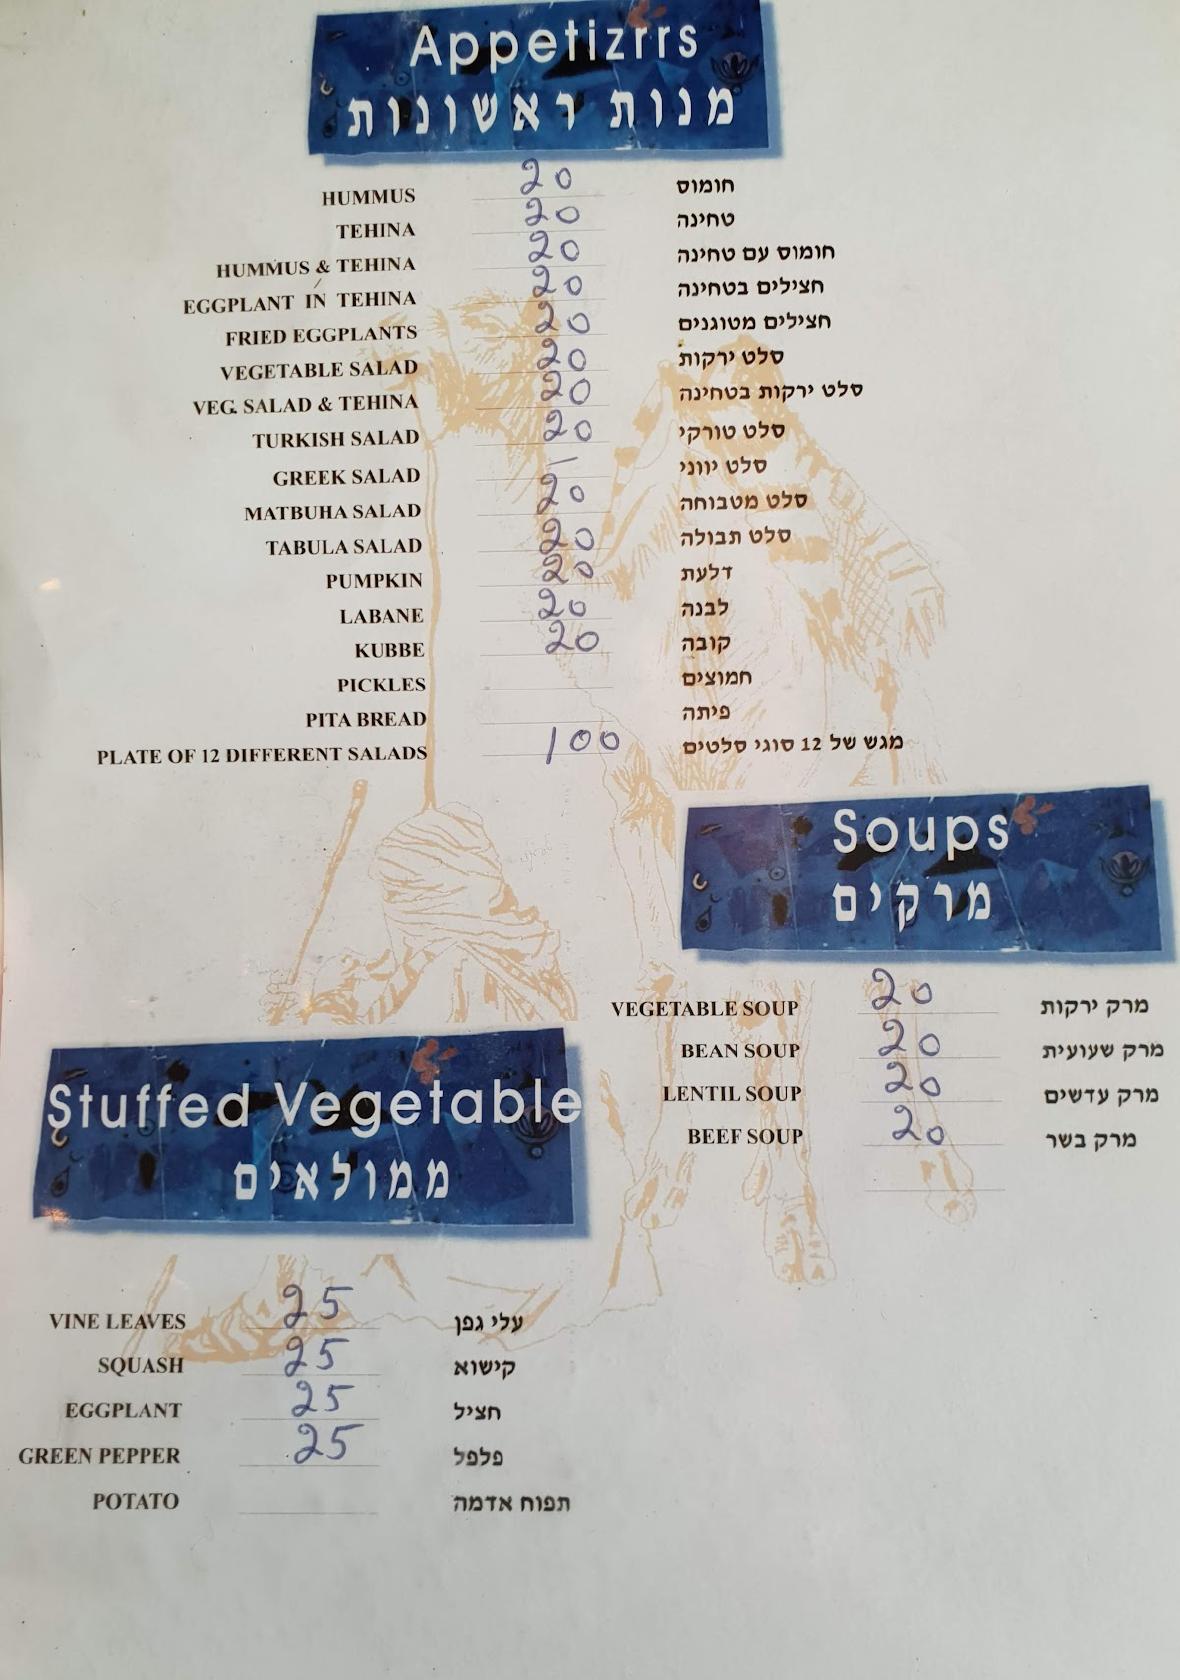 Appetizrrs
מנות ראשונות
HUMMUS 20 חומוס
TEHINA 20 טחינה
HUMMUS & TEHINA 20 חומוס עם טחינה
EGGPLANT IN TEHINA 20 חצילים בטחינה
FRIED EGGPLANTS 20 חצילים מטוגנים
VEGETABLE SALAD 20 סלט ירקות
VEG. SALAD & TEHINA 20 סלט ירקות בטחינה
TURKISH SALAD 20 סלט טורקי
GREEK SALAD סלט יווני
MATBUHA SALAD 20 סלט מטבוחה
TABULA SALAD 20 סלט תבולה
PUMPKIN 20 דלעת
LABANE 20 לבנה
KUBBE 20 קובה
PICKLES חמוצים
PITA BREAD פיתה
PLATE OF 12 DIFFERENT SALADS 100 מגש של 12 סוגי סלטים
Soups
מרקים
VEGETABLE SOUP 20 מרק ירקות
BEAN SOUP 20 מרק שעועית
LENTIL SOUP 20 מרק עדשים
BEEF SOUP 20 מרק בשר
Stuffed Vegetable
ממולאים
VINE LEAVES 25 עלי גפן
SQUASH 25 קישוא
EGGPLANT 25 חציל
GREEN PEPPER 25 פלפל
POTATO תפוח אדמה